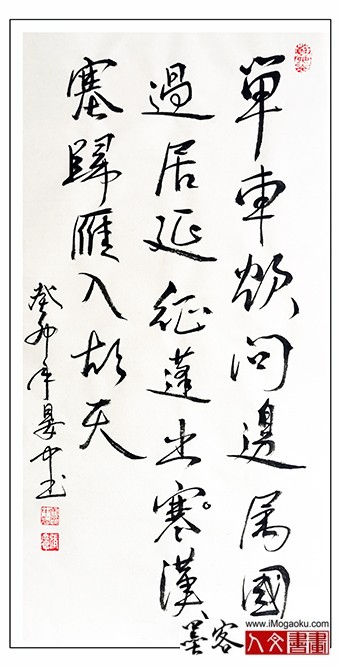 單車欲問邊属國
過居延征蓬出寒漢
塞歸雁入胡天
癸卯年晏中书
墨客
www.iMogaoku.com
人文書畫